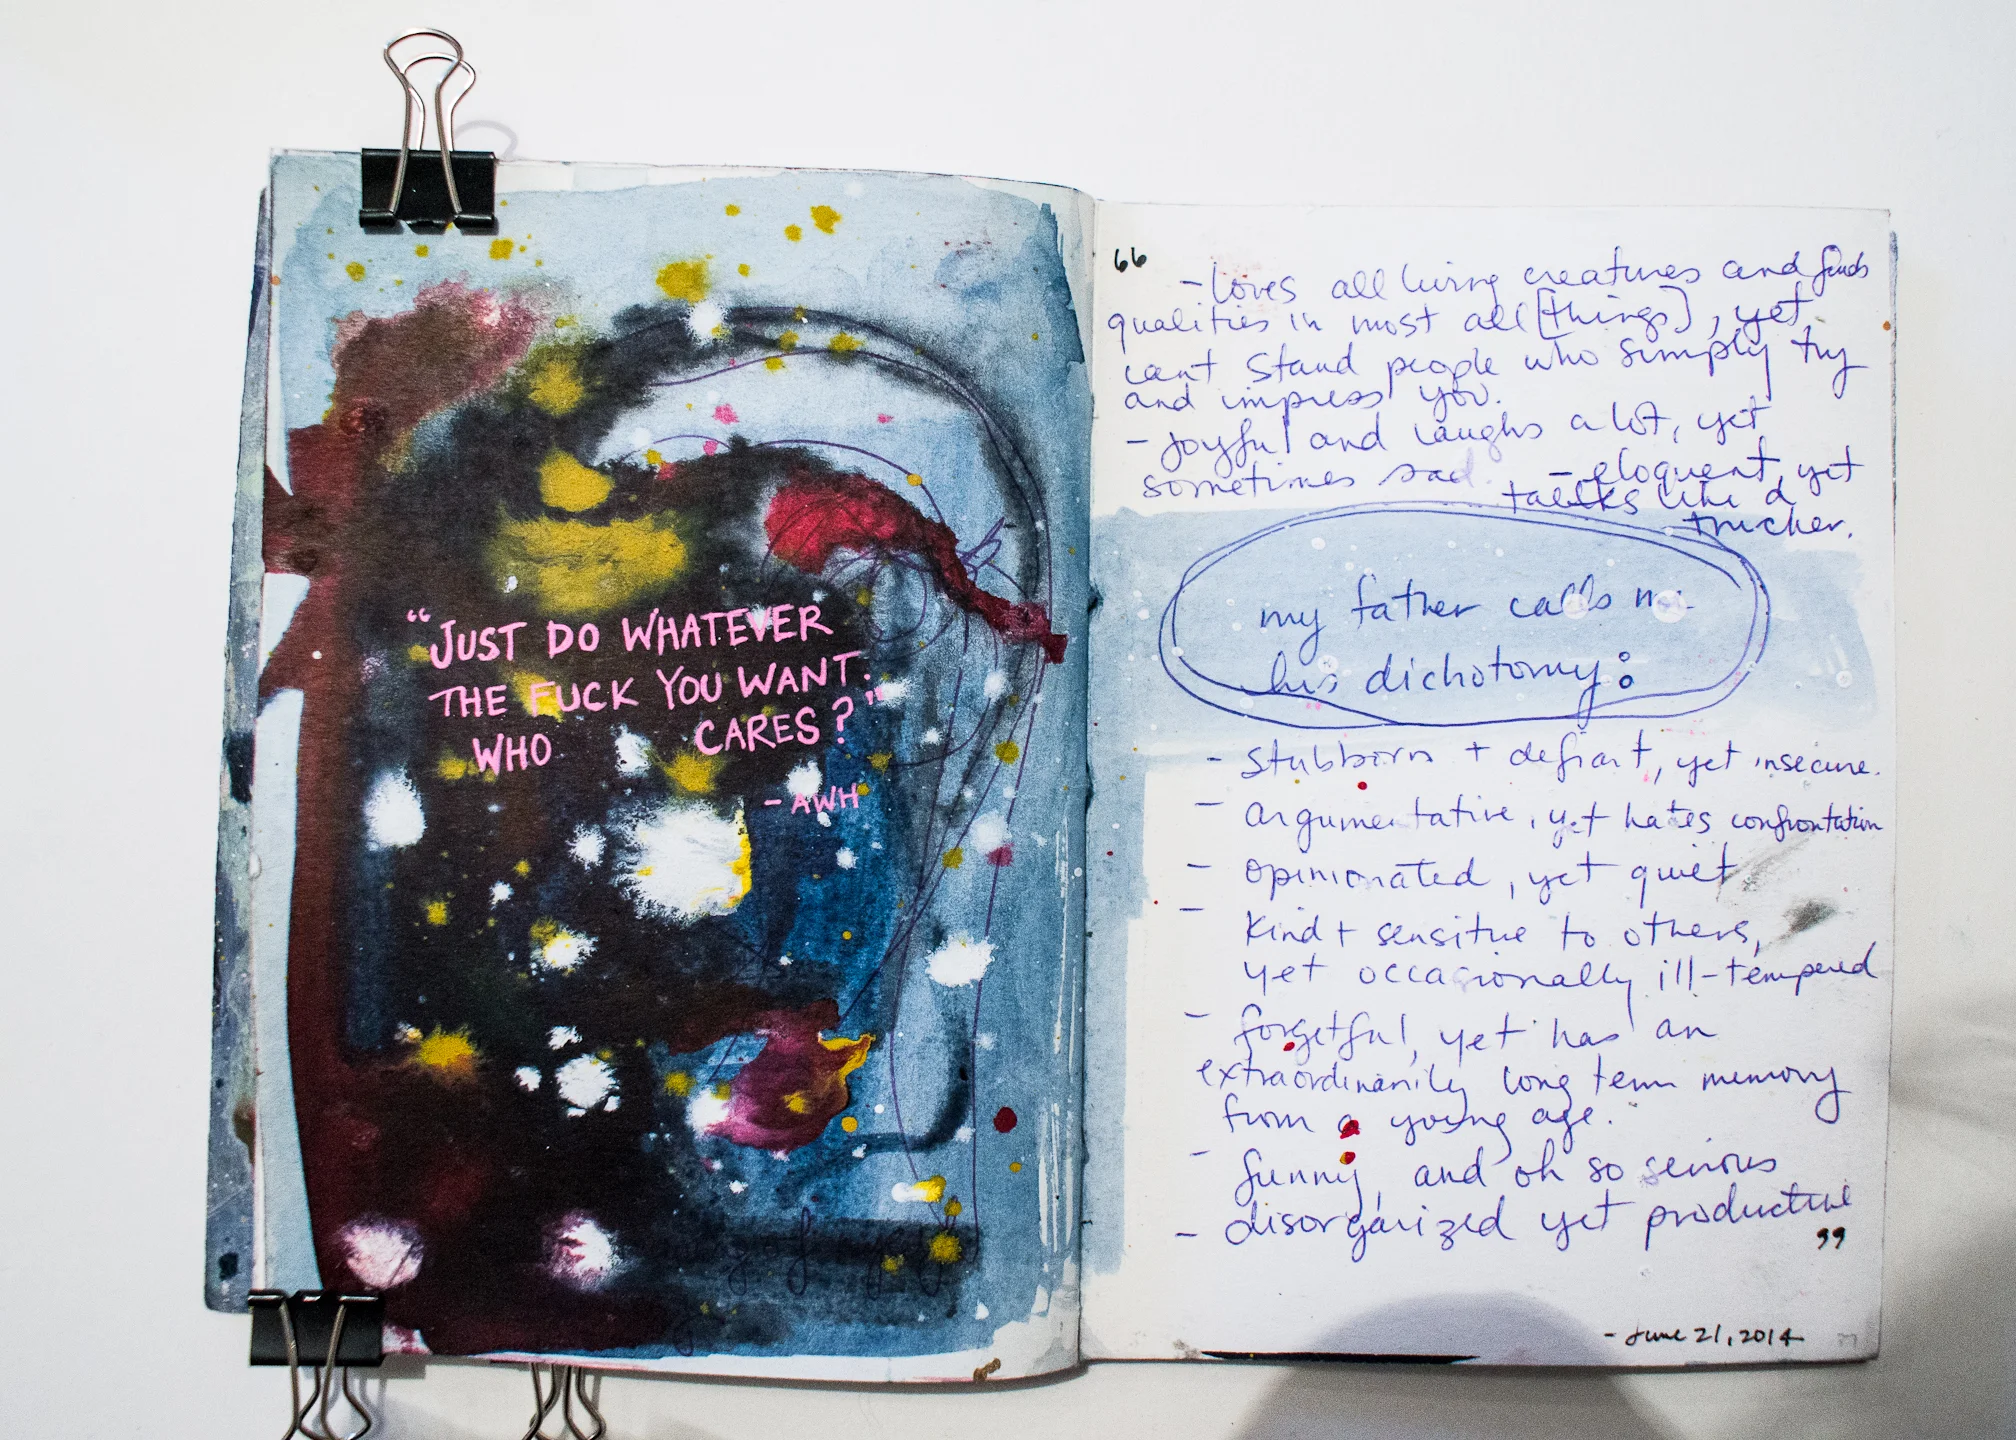 “JUST DO WHATEVER
THE FUCK YOU WANT.
WHO CARES?”
- AWH
“
- loves all living creatures and finds
qualities in most all [things], yet,
cant stand people who simply try
and impress you.
- joyful and laughs a lot, yet
sometimes sad.
- eloquent, yet
talks like a
trucker.
my father calls me
his dichotomy:
- stubborn + defiant, yet insecure.
- argumentative, yet hates confrontation
- opinionated, yet quiet
- kind + sensitive to others,
yet occasionally ill-tempered
- forgetful, yet has an
extraordinarily long term memory
from a young age.
- funny, and oh so serious
- disorganized yet productive
”
- June 21, 2014